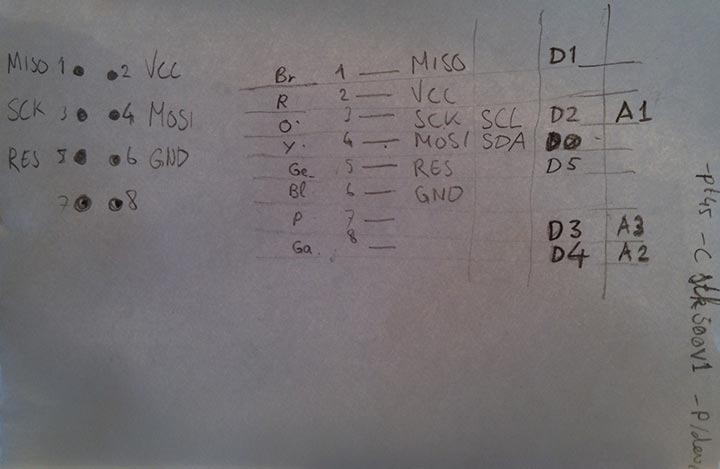 MISO 1 2 VCC
SCK 3 4 MOSI
RES 5 6 GND
7 8
Br 1 MISO D1
R 2 VCC
O. 3 SCK SCL D2 A1
Y. 4 MOSI SDA D0
Ge 5 RES D5
Bl 6 GND
P 7 D3 A3
Ga. 8 D4 A2
-pt45 -c stk500v1 -P/dev/